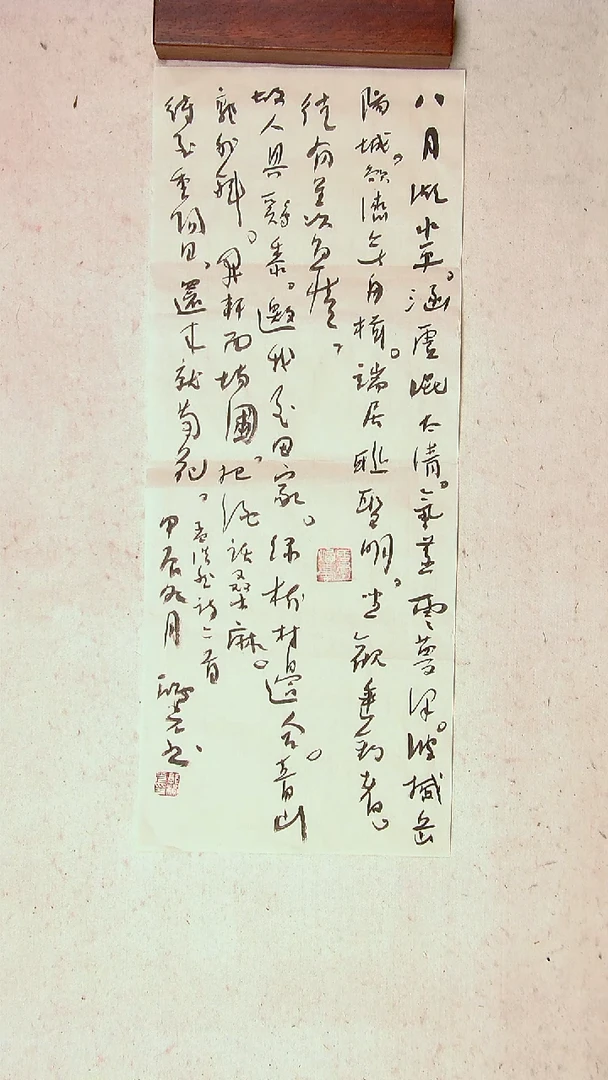 八月湖水平。涵虚混太清。氣蒸雲夢澤。波撼岳
陽城。欲濟無舟楫。端居恥聖明。坐觀垂釣者。
徒有羡魚情。
故人具雞黍。邀我至田家。綠樹村邊合。青山
郭外斜。開軒面場圃。把酒話桑麻。
待到重陽日。還來就菊花。
孟浩然詩二首
甲辰九月